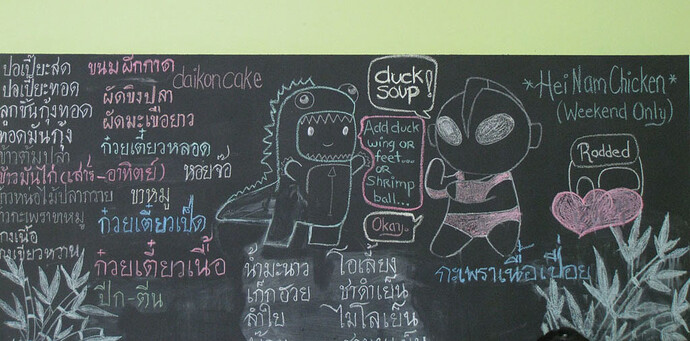 ปอเปี๊ยะสด
ปอเปี๊ยะทอด
ลูกชิ้นกุ้งทอด
ทอดมันกุ้ง
ข้าวต้มปลา
ข้าวมันไก่ (เสาร์-อาทิตย์)
ขนมผักกาด
daikon cake
ผัดขิงปลา
ผัดมะเขือยาว
ก๋วยเตี๋ยวหลอด
หอยจ๊อ
ขาหมู
ก๋วยเตี๋ยวเป็ด
ก๋วยเตี๋ยวเนื้อ
ปีก-ตีน
duck
soup!
Add duck
wing or
feet...
or
Shrimp
ball...
Okay..
*Hei Nam Chicken*
(Weekend Only)
Rodded
กะเพราเนื้อเปื่อย
น้ำมะนาว
เก็กฮวย
ลำใย
โอเลี้ยง
ชาดำเย็น
ไมโลเย็น